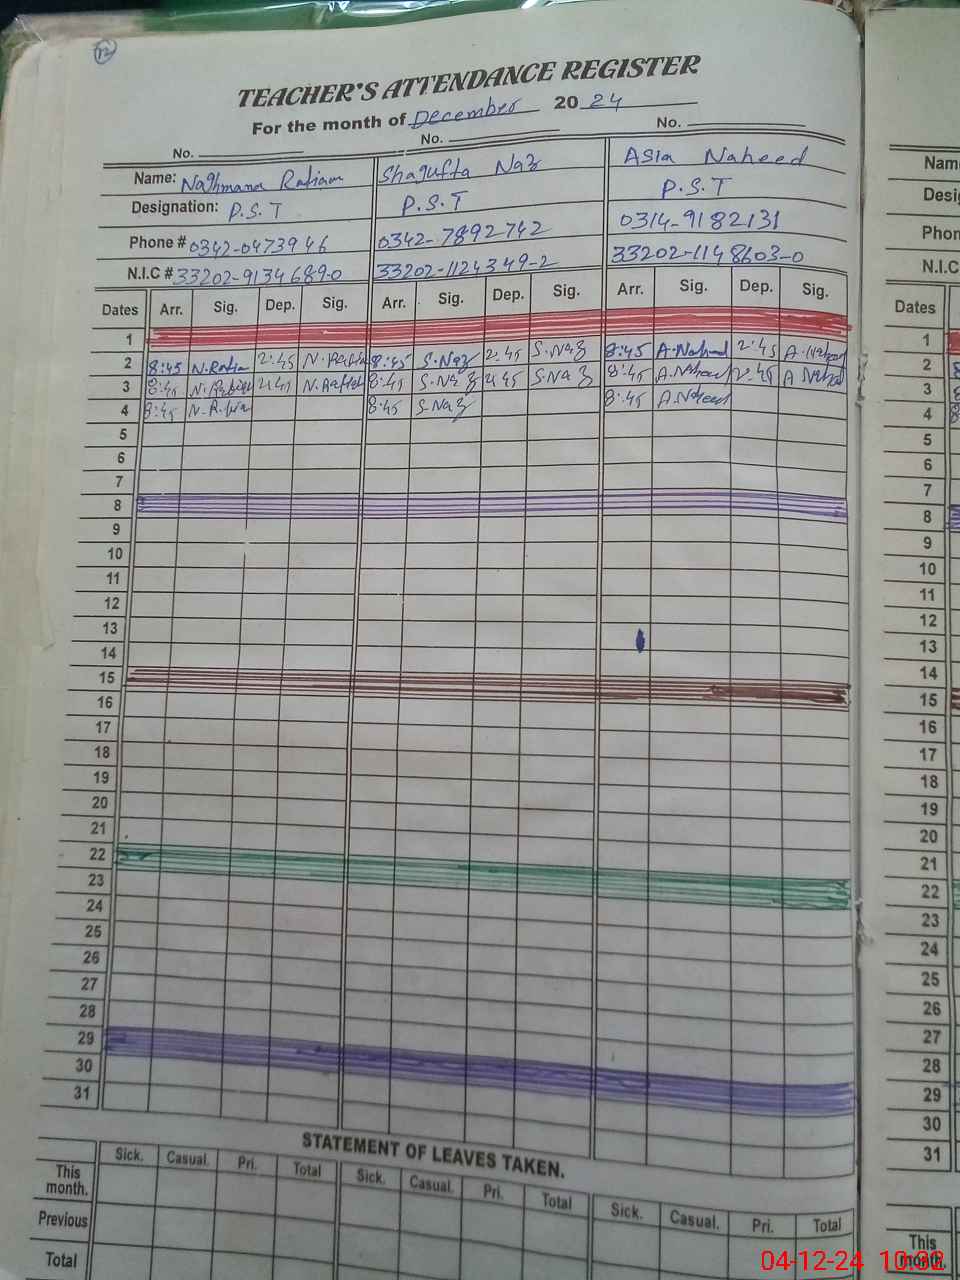 12
TEACHER'S ATTENDANCE REGISTER
For the month of December 20 24
No. No. No.
Name: Naghmana Shagufta Naz Asia Naheed
Designation: P.S.T P.S.T P.S.T
Phone # 0342-0473946 0342-7892742 0314-9182131
N.I.C # 33202-9134689-0 33202-1124349-2 33202-1148603-0
Dates Arr. Sig. Dep. Sig. Arr. Sig. Dep. Sig. Arr. Sig. Dep. Sig.
1
2 8:45 2:45 8:45 S.Naz 2:45 S.Naz 8:45 A.Naheed 2:45 A.Naheed
3 8:45 2:45 8:45 S.Naz 2:45 S.Naz 8:45 A.Naheed 2:45 A.Naheed
4 8:45 8:45 S.Naz 8:45 A.Naheed
5
6
7
8
9
10
11
12
13
14
15
16
17
18
19
20
21
22
23
24
25
26
27
28
29
30
31
STATEMENT OF LEAVES TAKEN.
Sick. Casual. Pri. Total Sick. Casual. Pri. Total Sick. Casual. Pri. Total
This month.
Previous
Total
Name
Desig
Phon
N.I.C
Dates
1
2
3
4
5
6
7
8
9
10
11
12
13
14
15
16
17
18
19
20
21
22
23
24
25
26
27
28
29
30
31
This
month.
04-12-24 10:32